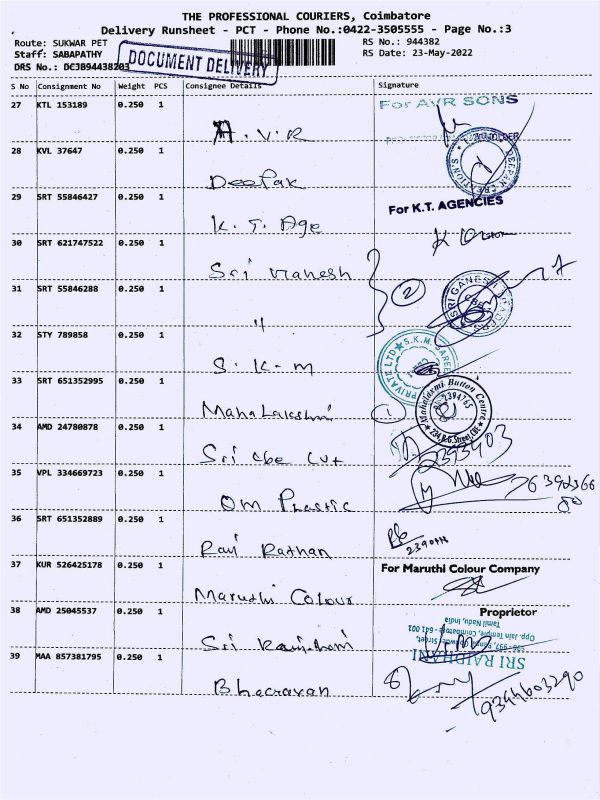 THE PROFESSIONAL COURIERS, Coimbatore
Delivery Runsheet - PCT - Phone No.:0422-3505555 - Page No.:3
Route: SUKWAR PET
RS No.: 944382
Staff: SABAPATHY
RS Date: 23-May-2022
DRS No.: DCJB94438203
DOCUMENT DELIVERY
S No Consignment No Weight PCS Consignee Details Signature
27 KTL 153189 0.250 1
A.V.R
For AVR SONS
28 KVL 37647 0.250 1
Deepak
29 SRT 55846427 0.250 1
K. T. Age
For K.T. AGENCIES
30 SRT 621747522 0.250 1
Sri Ganesh
2
SRI GANESH
31 SRT 55846288 0.250 1
"
32 STY 789858 0.250 1
S. K. m
S.K.M.
PRIVATE LTD
33 SRT 651352995 0.250 1
Maha Lakshmi
1
Mahalaxmi Button Centre
2394765
34 AMD 24780878 0.250 1
Sri Cbe
35 VPL 334669723 0.250 1
Om Plastic
36 SRT 651352889 0.250 1
Ravi Rathan
37 KUR 526425178 0.250 1
Maruthi Colour
For Maruthi Colour Company
Proprietor
38 AMD 25045537 0.250 1
Sri
SRI RAJDHANI
Opp. Jain Temple, Coimbatore - 641 001
Tamil Nadu, India
39 MAA 857381795 0.250 1
9344603290